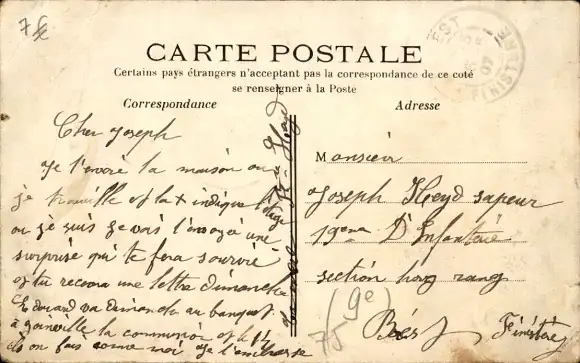 7€
CARTE POSTALE
Certains pays étrangers n'acceptant pas la correspondance de ce coté
se renseigner à la Poste
Correspondance
Adresse
BREST
07
FINISTERE
Cher Joseph
Je t'envoie la maison ou
je travaille et la + indique l'étage
ou je suis je vais t'envoyé une
surprise qui te fera sourire
et tu recevra une lettre dimanche
Edouard va dimanche au banquet
à Joinville la communion et le 14
ils on fait comme moi Je t'embrasse
Heyd
Monsieur
Joseph Heyd sapeur
19eme D'Infanterie
section hors rang
Brest Finistère
(9e)
75